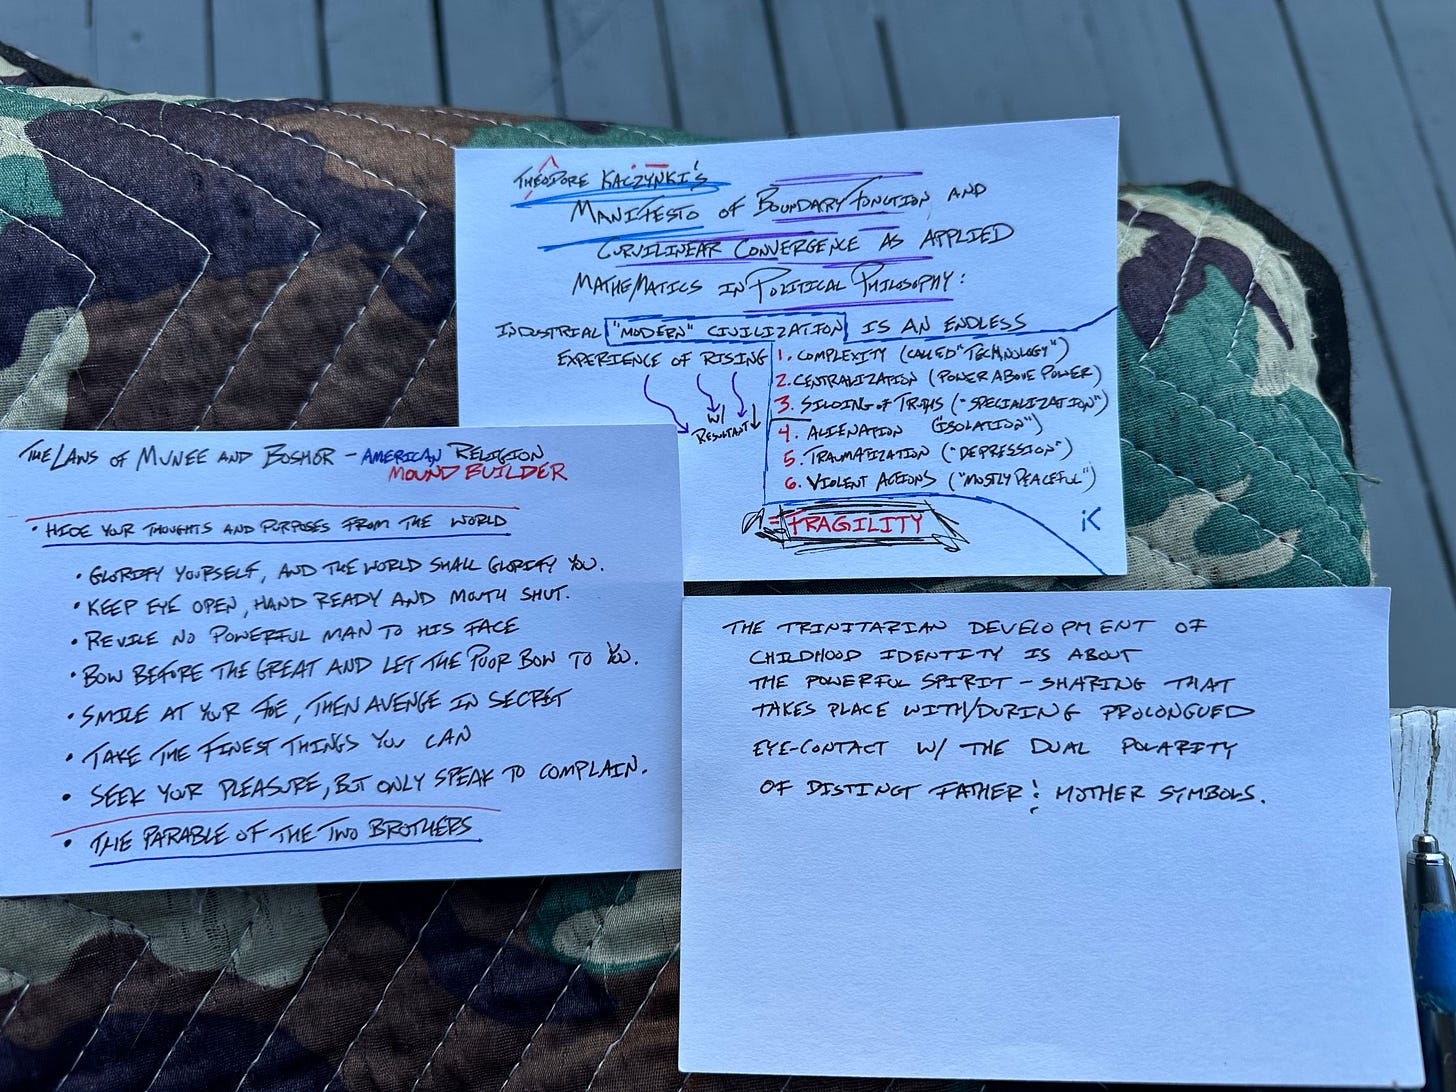 THEODORE KACZYNKI'S
MANIFESTO OF BOUNDARY FUNCTION AND
CURVILINEAR CONVERGENCE AS APPLIED
MATHEMATICS IN POLITICAL PHILOSOPHY:
INDUSTRIAL "MODERN" CIVILIZATION IS AN ENDLESS
EXPERIENCE OF RISING
1. COMPLEXITY (CALLED "TECHNOLOGY")
2. CENTRALIZATION (POWER ABOVE POWER)
3. SILOING OF TRIBES ("SPECIALIZATION")
W/
RESULTANT
4. ALIENATION ("ISOLATION")
5. TRAUMATIZATION ("DEPRESSION")
6. VIOLENT ACTIONS ("MOSTLY PEACEFUL")
= FRAGILITY
iK
THE LAWS OF MUNEE AND BOSHOR - AMERICAN RELIGION
MOUND BUILDER
• HIDE YOUR THOUGHTS AND PURPOSES FROM THE WORLD
• GLORIFY YOURSELF, AND THE WORLD SHALL GLORIFY YOU.
• KEEP EYE OPEN, HAND READY AND MOUTH SHUT.
• REVILE NO POWERFUL MAN TO HIS FACE
• BOW BEFORE THE GREAT AND LET THE POOR BOW TO YOU.
• SMILE AT YOUR FOE, THEN AVENGE IN SECRET
• TAKE THE FINEST THINGS YOU CAN
• SEEK YOUR PLEASURE, BUT ONLY SPEAK TO COMPLAIN.
• THE PARABLE OF THE TWO BROTHERS
THE TRINITARIAN DEVELOPMENT OF
CHILDHOOD IDENTITY IS ABOUT
THE POWERFUL SPIRIT-SHARING THAT
TAKES PLACE WITH/DURING PROLONGUED
EYE-CONTACT W/ THE DUAL POLARITY
OF DISTINCT FATHER : MOTHER SYMBOLS.